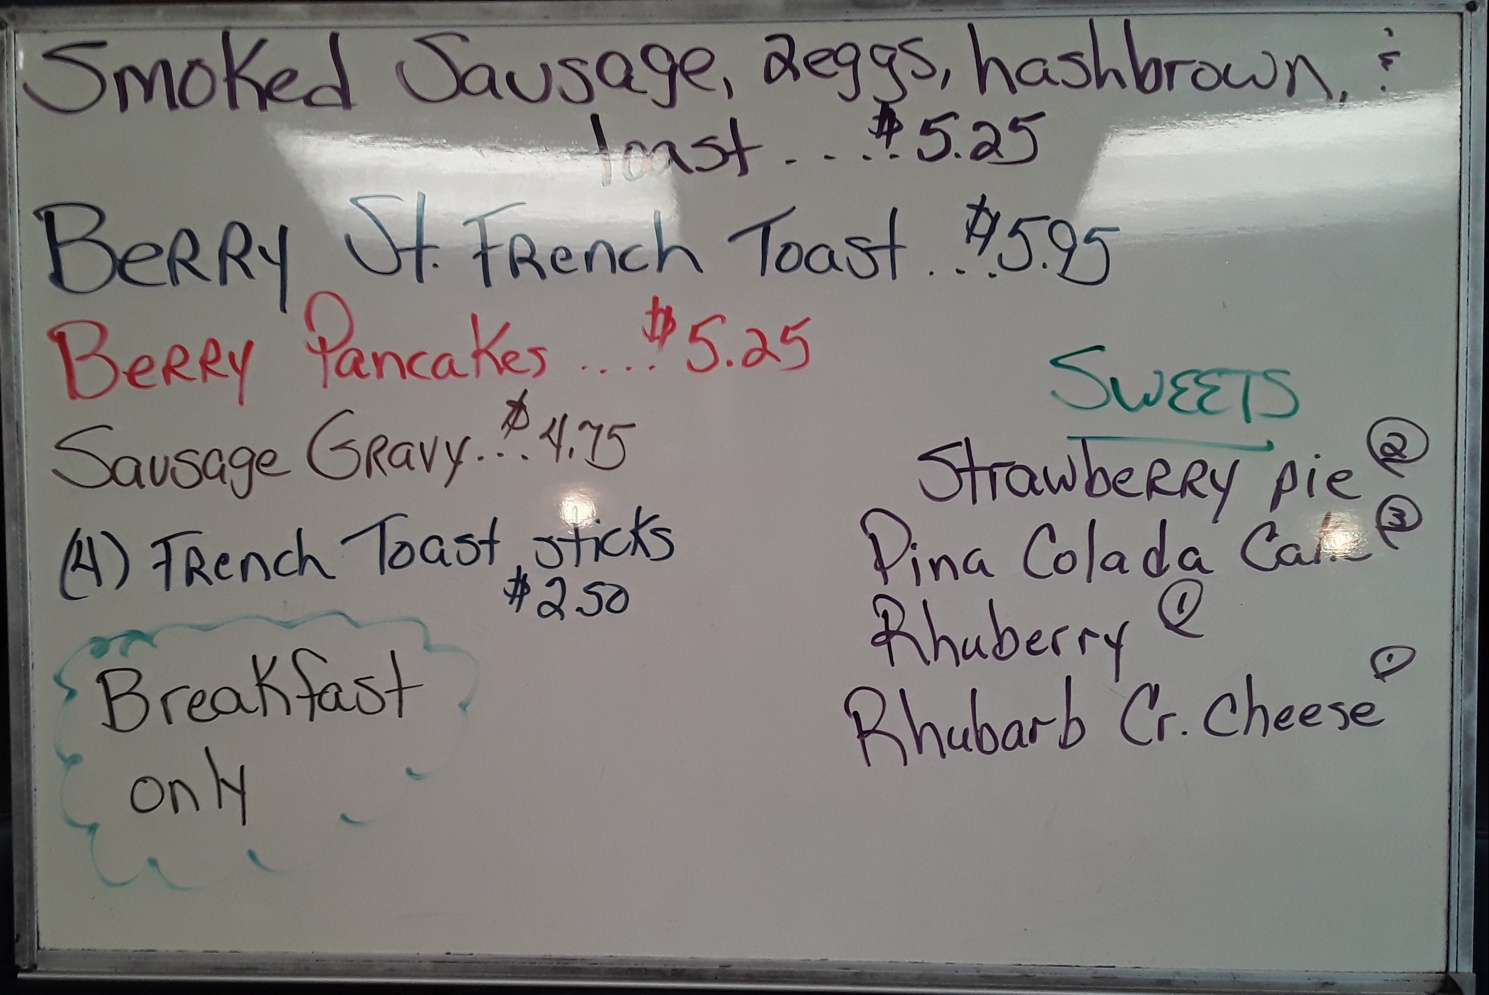 Smoked Sausage, 2eggs, hashbrown, &
toast ..... $5.25
Berry St. French Toast .... $5.95
Berry Pancakes .... $5.25
Sausage Gravy.... $4.75
(4) French Toast sticks
$2.50
Breakfast
only
SWEETS
Strawberry pie 2
Pina Colada Cake 3
Rhuberry 1
Rhubarb Cr. Cheese 1